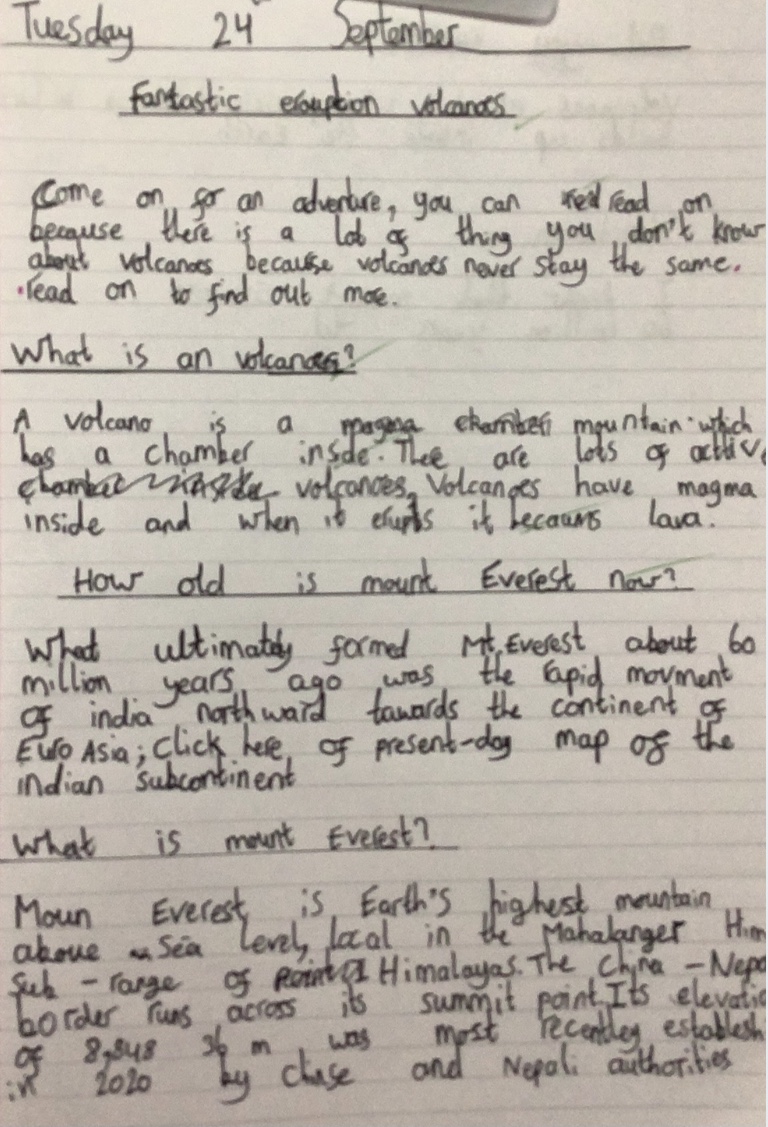 Tuesday 24 September
Fantastic eruption volcanoes
Come on for an adventure, you can read on
because there is a lot of thing you don't know
about volcanoes because volcanoes never stay the same.
read on to find out more.
What is an volcanoes?
A volcano is a magma chamber mountain which
has a chamber inside. Thee are lots of activ
chamber inside volcanoes, Volcanoes have magma
inside and when it erupts it becaums lava.
How old is mount Everest now?
What ultimately formed Mt. Everest about 60
million years ago was the rapid movment
of india northward towards the continent of
Euro Asia; Click here, of present-day map of the
indian subcontinent
What is mount Everest?
Moun Everest is Earth's highest mountain
above sea level, local in the Mahalanger Him
Sub-range of Himalayas. The China-Nepa
border runs across its summit point. Its elevatio
of 8,848 36 m was most recentley establesh
in 2020 by chise and Nepali authorities